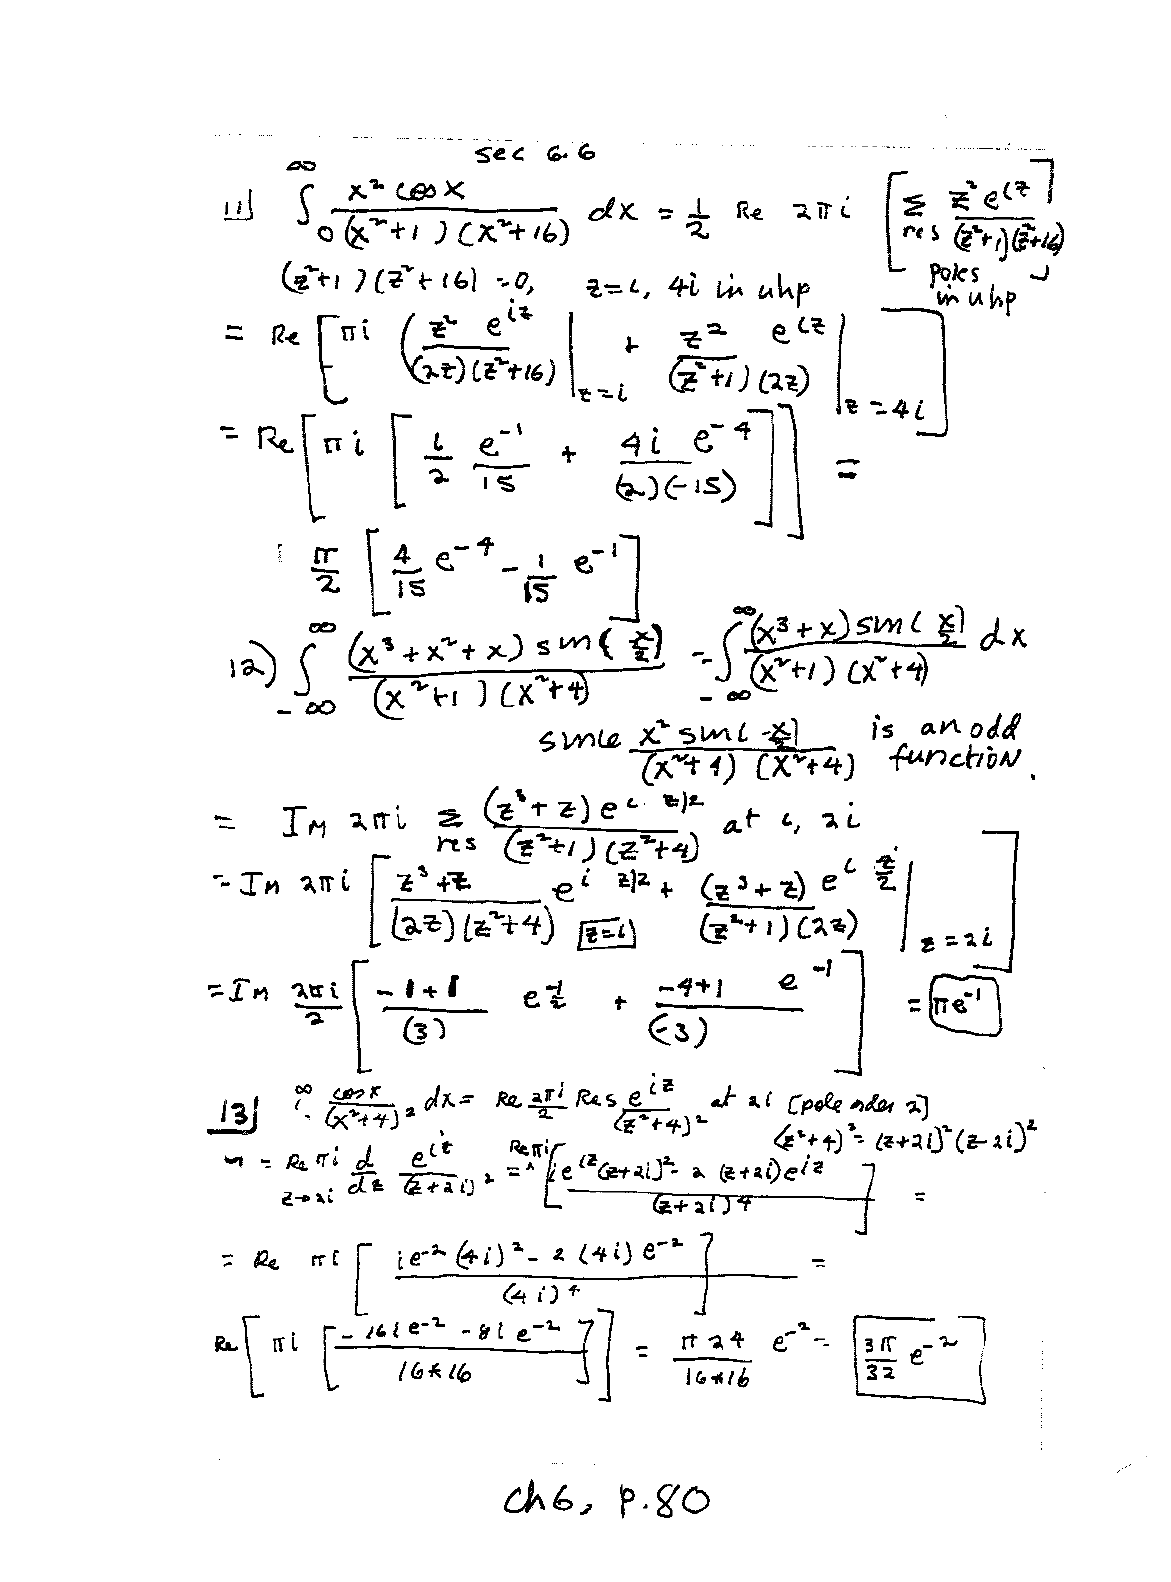 sec 6.6
11) ∫_0^∞ x² cos x / (x²+1)(x²+16) dx = 1/2 Re 2πi [ Σ res z² e^{iz} / (z²+1)(z²+16) ] poles in uhp
(z²+1)(z²+16) = 0, z=i, 4i in uhp
= Re [ πi ( z² e^{iz} / (2z)(z²+16) |_{z=i} + z² e^{iz} / (z²+1)(2z) |_{z=4i} ]
= Re [ πi [ i/2 e^{-1}/15 + 4i e^{-4} / (2)(-15) ] ] =
π/2 [ 4/15 e^{-4} - 1/15 e^{-1} ]
12) ∫_{-∞}^∞ (x³+x²+x) sin(x/2) / (x²+1)(x²+4) = ∫_{-∞}^∞ (x³+x) sin(x/2) / (x²+1)(x²+4) dx
since x² sin(x/2) / (x²+1)(x²+4) is an odd function.
= Im 2πi Σ res (z³+z) e^{i z/2} / (z²+1)(z²+4) at i, 2i
= Im 2πi [ z³+z / (2z)(z²+4) e^{i z/2} z=i + (z³+z) e^{i z/2} / (z²+1)(2z) |_{z=2i} ]
= Im 2πi/2 [ -1+1 / (3) e^{-1/2} + -4+1 / (-3) e^{-1} ] = πe^{-1}
13) ∫_0^∞ cos x / (x²+4)² dx = Re 2πi/2 Res e^{iz} / (z²+4)² at 2i [pole order 2]
(z²+4)² = (z+2i)²(z-2i)²
= Re πi d/dz e^{iz} / (z+2i)² z→2i = Re πi [ i e^{iz}(z+2i)² - 2(z+2i)e^{iz} / (z+2i)⁴ ] =
= Re πi [ i e^{-2} (4i)² - 2(4i) e^{-2} / (4i)⁴ ] =
Re [ πi [ -16i e^{-2} - 8i e^{-2} / 16*16 ] ] = π 24 / 16*16 e^{-2} = 3π/32 e^{-2}
ch 6, p.80